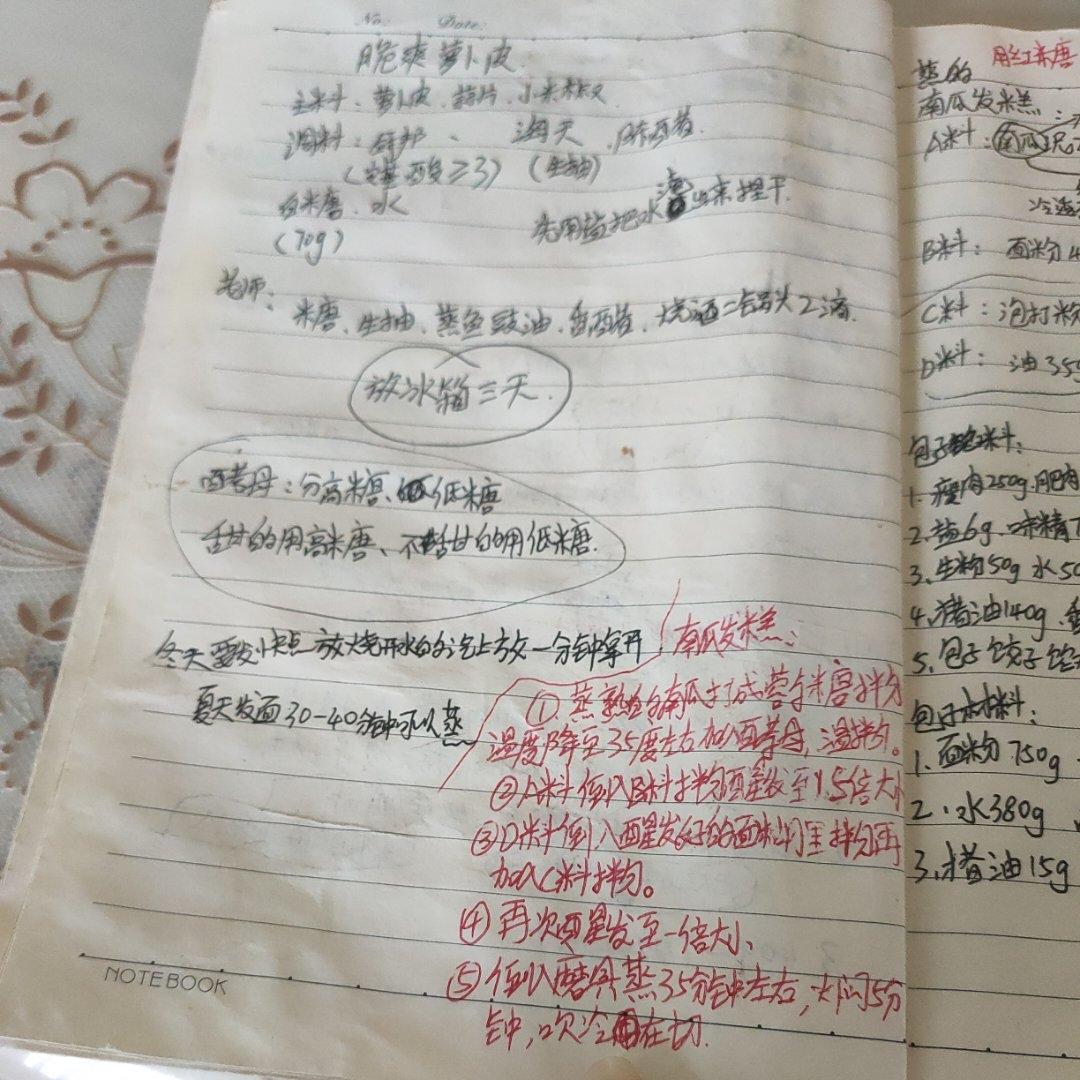 No. Date.
脆爽萝卜皮
主料：萝卜皮、蒜片、小米椒
调料：厨邦、海天、陈醋
(氨基酸≥3) (生抽)
白米糖、水 先用盐把水出来捏干.
(70g)
老师：
米糖、生抽、蒸鱼豉油、香醋、烧酒二锅头2滴.
放冰箱三天.
酵母：分高糖、低糖
甜的用高糖、不甜的用低糖.
冬天要发快点 放烧开水的汽上放一分钟拿开
夏天发面30-40分钟可以蒸
南瓜发糕：
①. 蒸熟的南瓜打成蓉与米唐拌匀
温度降至35度左右加入酵母，温拌匀。
②A料倒入B料拌匀醒发至1.5倍大小
③D料倒入醒发好的面料里拌匀再
加入C料拌匀。
④再次醒发至一倍大小、
⑤倒入磨具蒸35分钟左右，大闷5分
钟，吹冷在切.
NOTEBOOK
用红米唐
蒸的
南瓜发糕：
A料：南瓜泥
B料：面粉4
C料：泡打粉
D料：油35g
包子馅料：
1. 瘦肉250g.肥肉
2. 盐6g.味精
3、生粉50g 水50
4. 猪油140g.香
5、包子饺子馅
包子材料：
1、面粉750g
2. 水380g
3、猪油15g